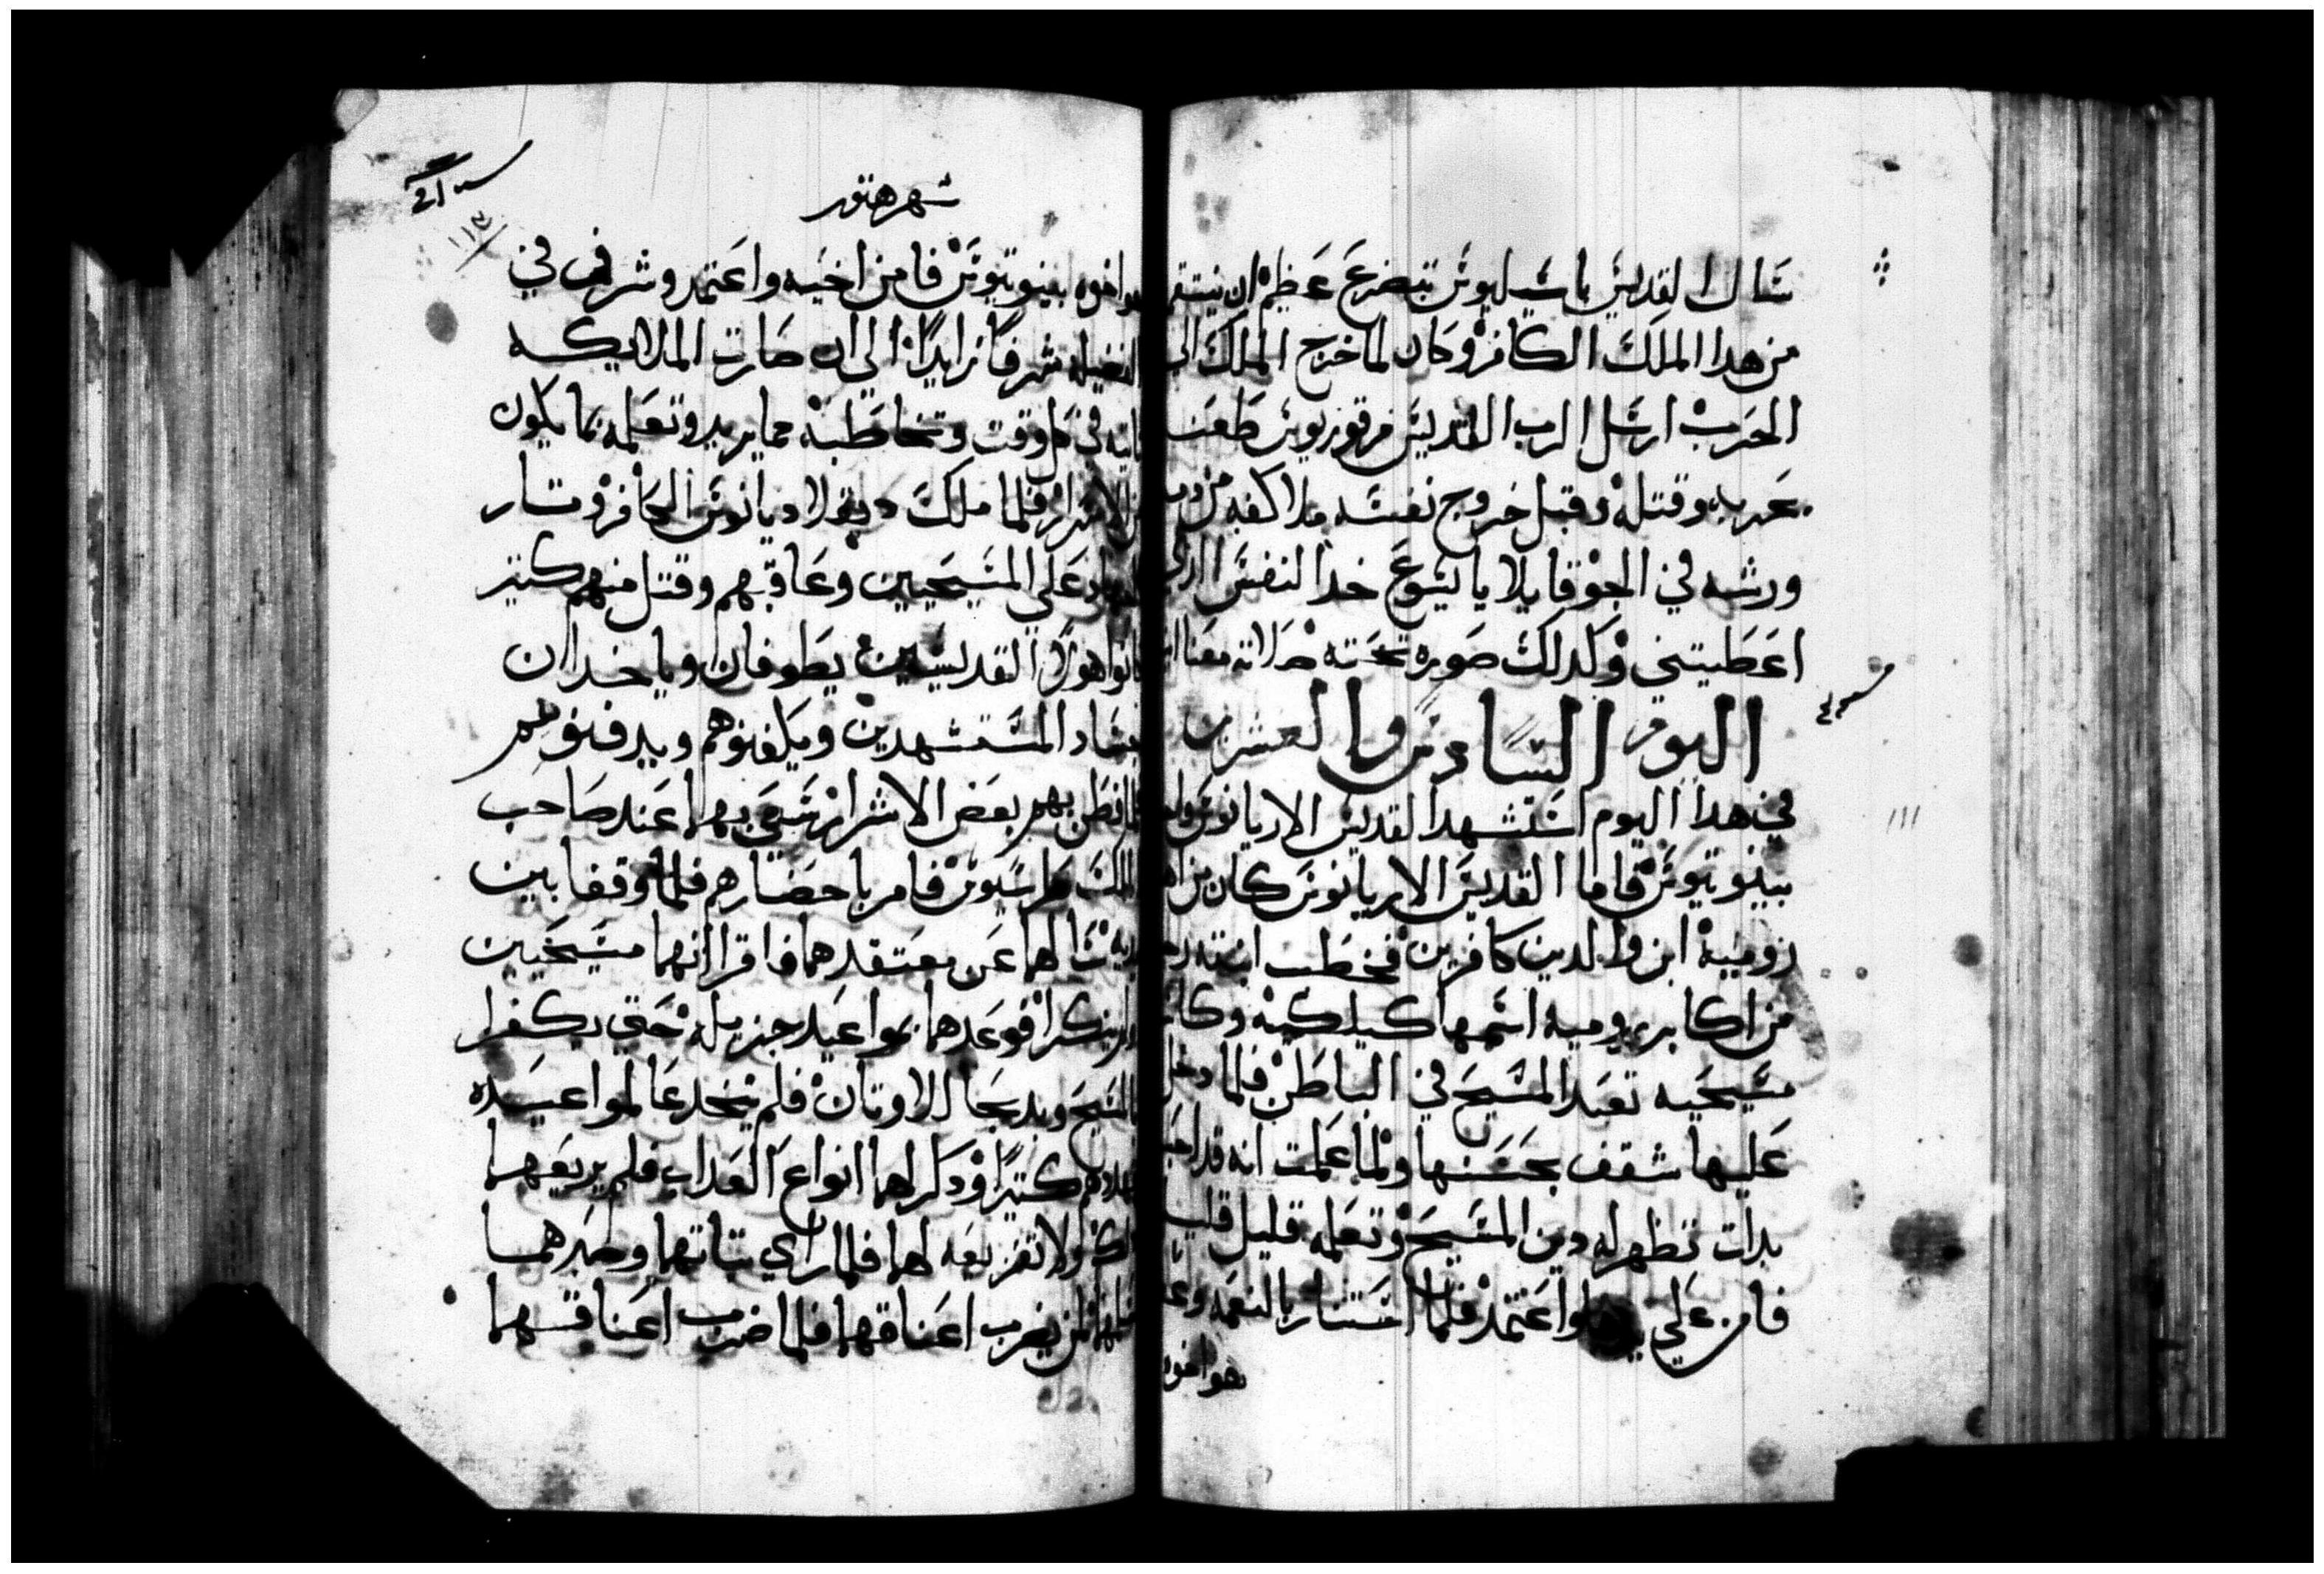 سال القديس باسيليوس بتضرع عظيم ان ينتقم
من هدا الملك الكافر وكان لما خرج الملك الي
الحرب ارسل الرب القديس مرقوريوس طعنه
بحربه وقتله وقبل خروج نفسه ملا كفه من دمه
ورشه في الجو قايلا يا يسوع خد النفس الدي
اعطيتني وكدلك صوره تحته صلاته معنا امين
اليوم السادس والعشرين
في هدا اليوم استشهد القديس الاريانوس واخوه
بيبنوتيوس فاما القديس الاريانوس كان من اهل
روميه ابن والدين كافرين فخطب ابنته
من اكابر روميه اسمها كيلكيه وكانت
مسيحيه تعبد المسيح في الباطن فلما دخل
عليها شقف بحسنها ولما علمت انه قد احبها
بدات تظهر له دين المسيح وتعلمه قليل قليل
فامن علي يديها واعتمد فلما استنار بالنعمه وعظ
هو اخوه
شهر هتور
١١٣
هو اخوه بيبنوتيوس فامن اخيه واعتمد وشرف في
الفضيله شرفا زايدا الي ان صارت الملايكه
تاتيه في كل وقت وتخاطبه مما يريد وتعلمه بما يكون
من الاسرار فلما ملك ديقلاديانوس الكافر وتار
علي المسيحيين وعاقبهم وقتل منهم كتير
كانوا هولا القديسين يطوفان وياخدان
اجساد المستشهدين ويكفنوهم ويدفنوهم
فلما فطن بهم بعض الاشرار سعي بهما عند صاحب
الملك طراسيوس فامر باحضارهم فلما وقفا بين
يديه سالهما عن معتقدهما فاقرا انهما مسيحين
ولم ينكرا فوعدهما بمواعيد جزيله حتي يكفرا
بالمسيح ويدبحا للاوتان فلم ينخدعا لمواعيده
فهددهم كتيرا ودكر لهما انواع العداب فلم يريعهما
ولا تفزيعه لهما فلما راي تباتهما وصبرهما
امر بضرب اعناقهما فلما ضرب اعناقهما